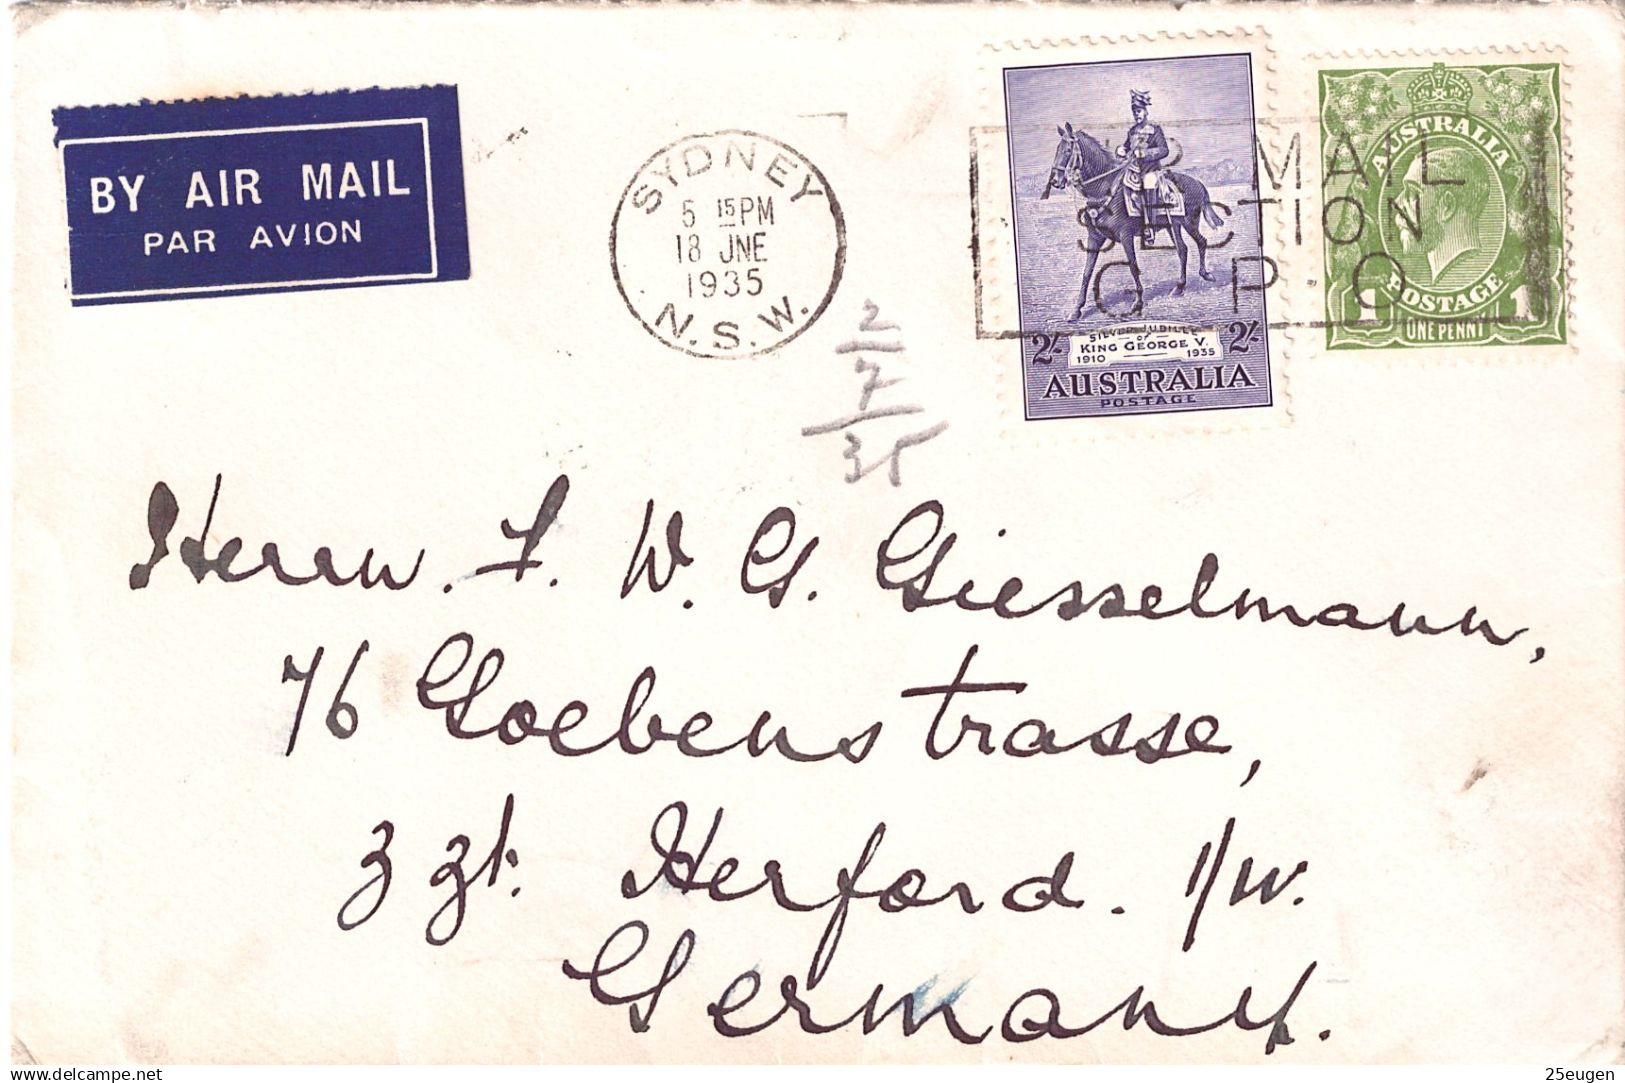 BY AIR MAIL
PAR AVION
SYDNEY
5 15PM
18 JNE
1935
N.S.W.
AIR MAIL
SECTION
G.P.O
2/- SILVER JUBILEE 2/-
OF
KING GEORGE V.
1910 1935
AUSTRALIA
POSTAGE
AUSTRALIA
POSTAGE
1 1
ONE PENNY
2
7
35
Herrn. F. W. G. Giesselmann,
76 Goebenstrasse,
z zt. Herford. i/W.
Germany.
delcampe.net
25eugen